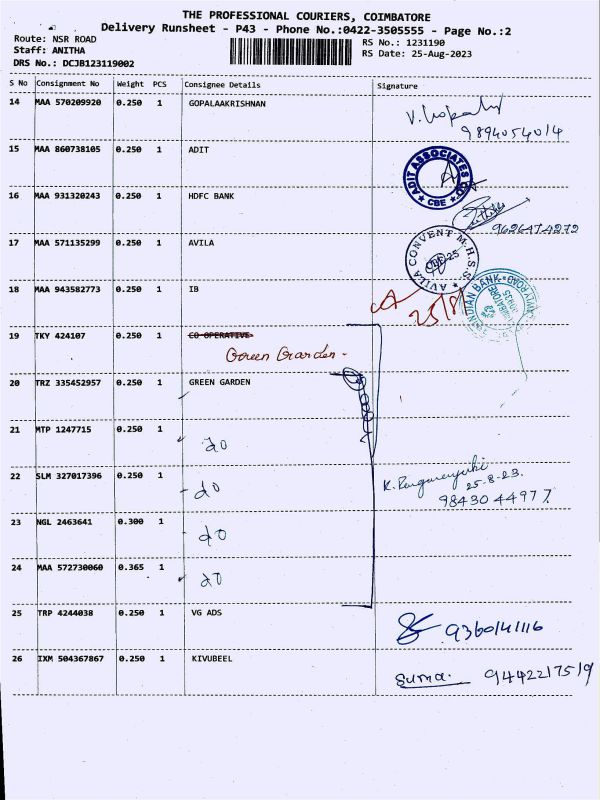 THE PROFESSIONAL COURIERS, COIMBATORE
Delivery Runsheet - P43 - Phone No.:0422-3505555 - Page No.:2
Route: NSR ROAD RS No.: 1231190
Staff: ANITHA RS Date: 25-Aug-2023
DRS No.: DCJB123119002
S No Consignment No Weight PCS Consignee Details Signature
14 MAA 570209920 0.250 1 GOPALAAKRISHNAN
9894054014
15 MAA 860738105 0.250 1 ADIT
ADIT ASSOCIATES CO
CBE
16 MAA 931320243 0.250 1 HDFC BANK
9626474272
17 MAA 571135299 0.250 1 AVILA
AVILA CONVENT M.H.S.S.
18 MAA 943582773 0.250 1 IB
25/8/
INDIAN BANK
19 TKY 424107 0.250 1 CO-OPERATIVE
Green Garden -
20 TRZ 335452957 0.250 1 GREEN GARDEN
21 MTP 1247715 0.250 1 do
22 SLM 327017396 0.250 1 do
25-8-23.
98430 44977
23 NGL 2463641 0.300 1 do
24 MAA 572730060 0.365 1 do
25 TRP 4244038 0.250 1 VG ADS
9360141116
26 IXM 504367867 0.250 1 KIVUBEEL
Suma. 9442217519